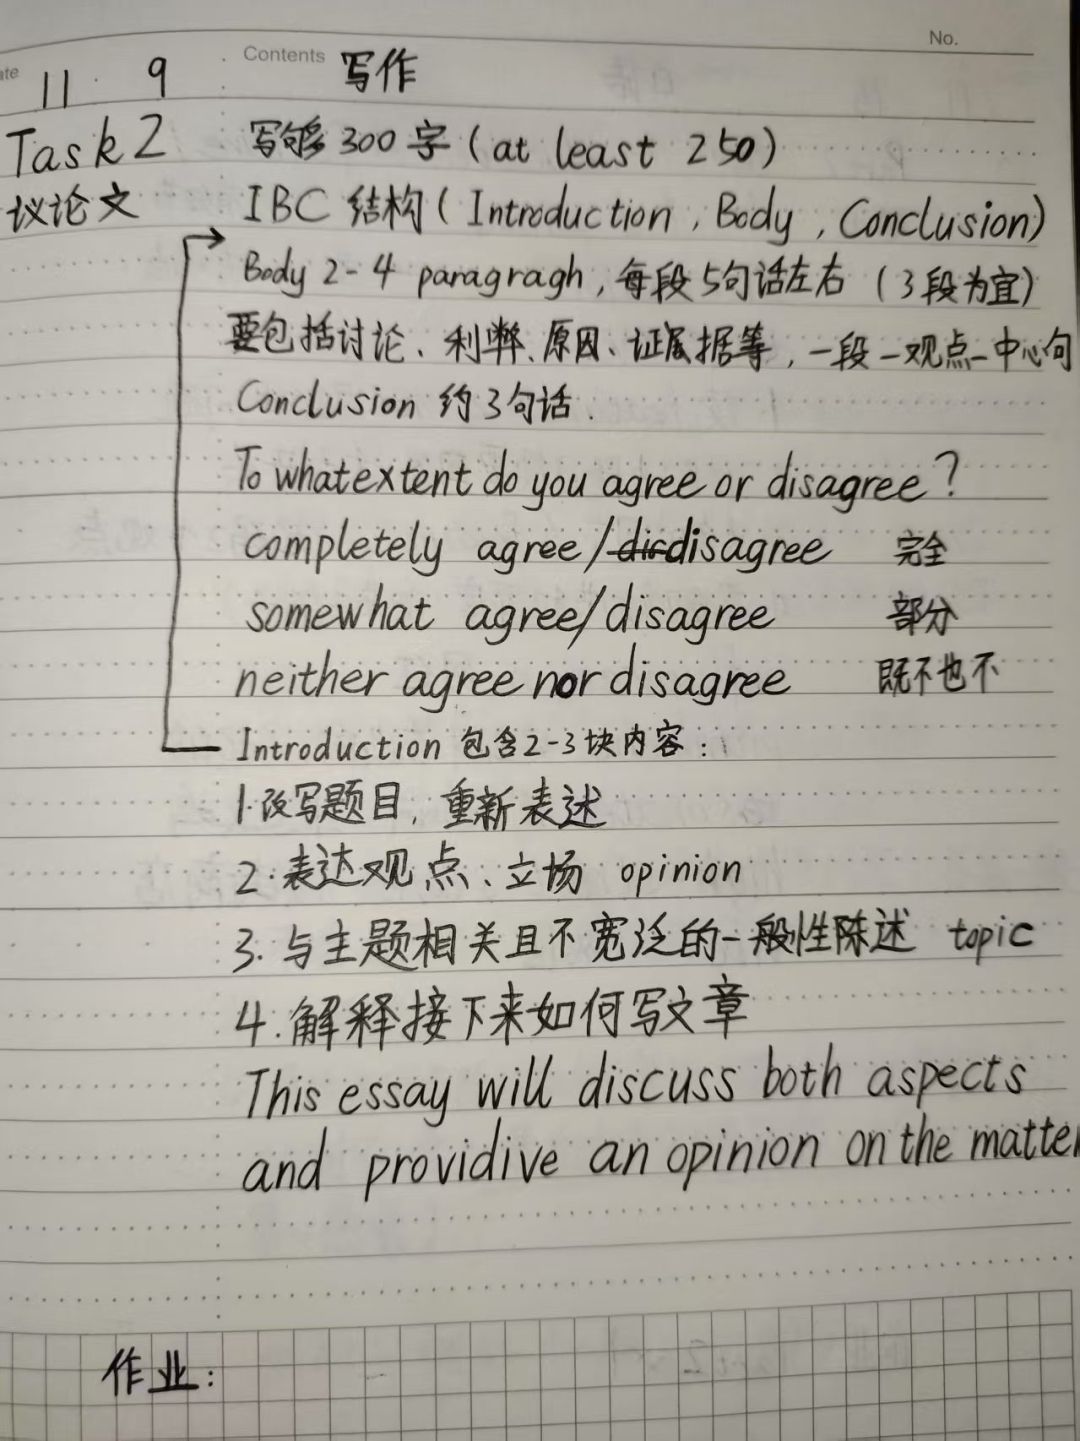 No.
ate 11 9 Contents 写作
Task 2 写够300字(at least 250)
议论文 IBC 结构(Introduction, Body, Conclusion)
Body 2-4 paragragh,每段5句话左右(3段为宜)
要包括讨论、利弊、原因、证据等,一段一观点一中心句
Conclusion 约3句话.
To what extent do you agree or disagree?
completely agree/disagree 完全
somewhat agree/disagree 部分
neither agree nor disagree 既不也不
Introduction 包含2-3块内容:
1.改写题目,重新表述
2.表达观点、立场 opinion
3.与主题相关且不宽泛的一般性陈述 topic
4.解释接下来如何写文章
This essay will discuss both aspects
and providive an opinion on the matter
作业: